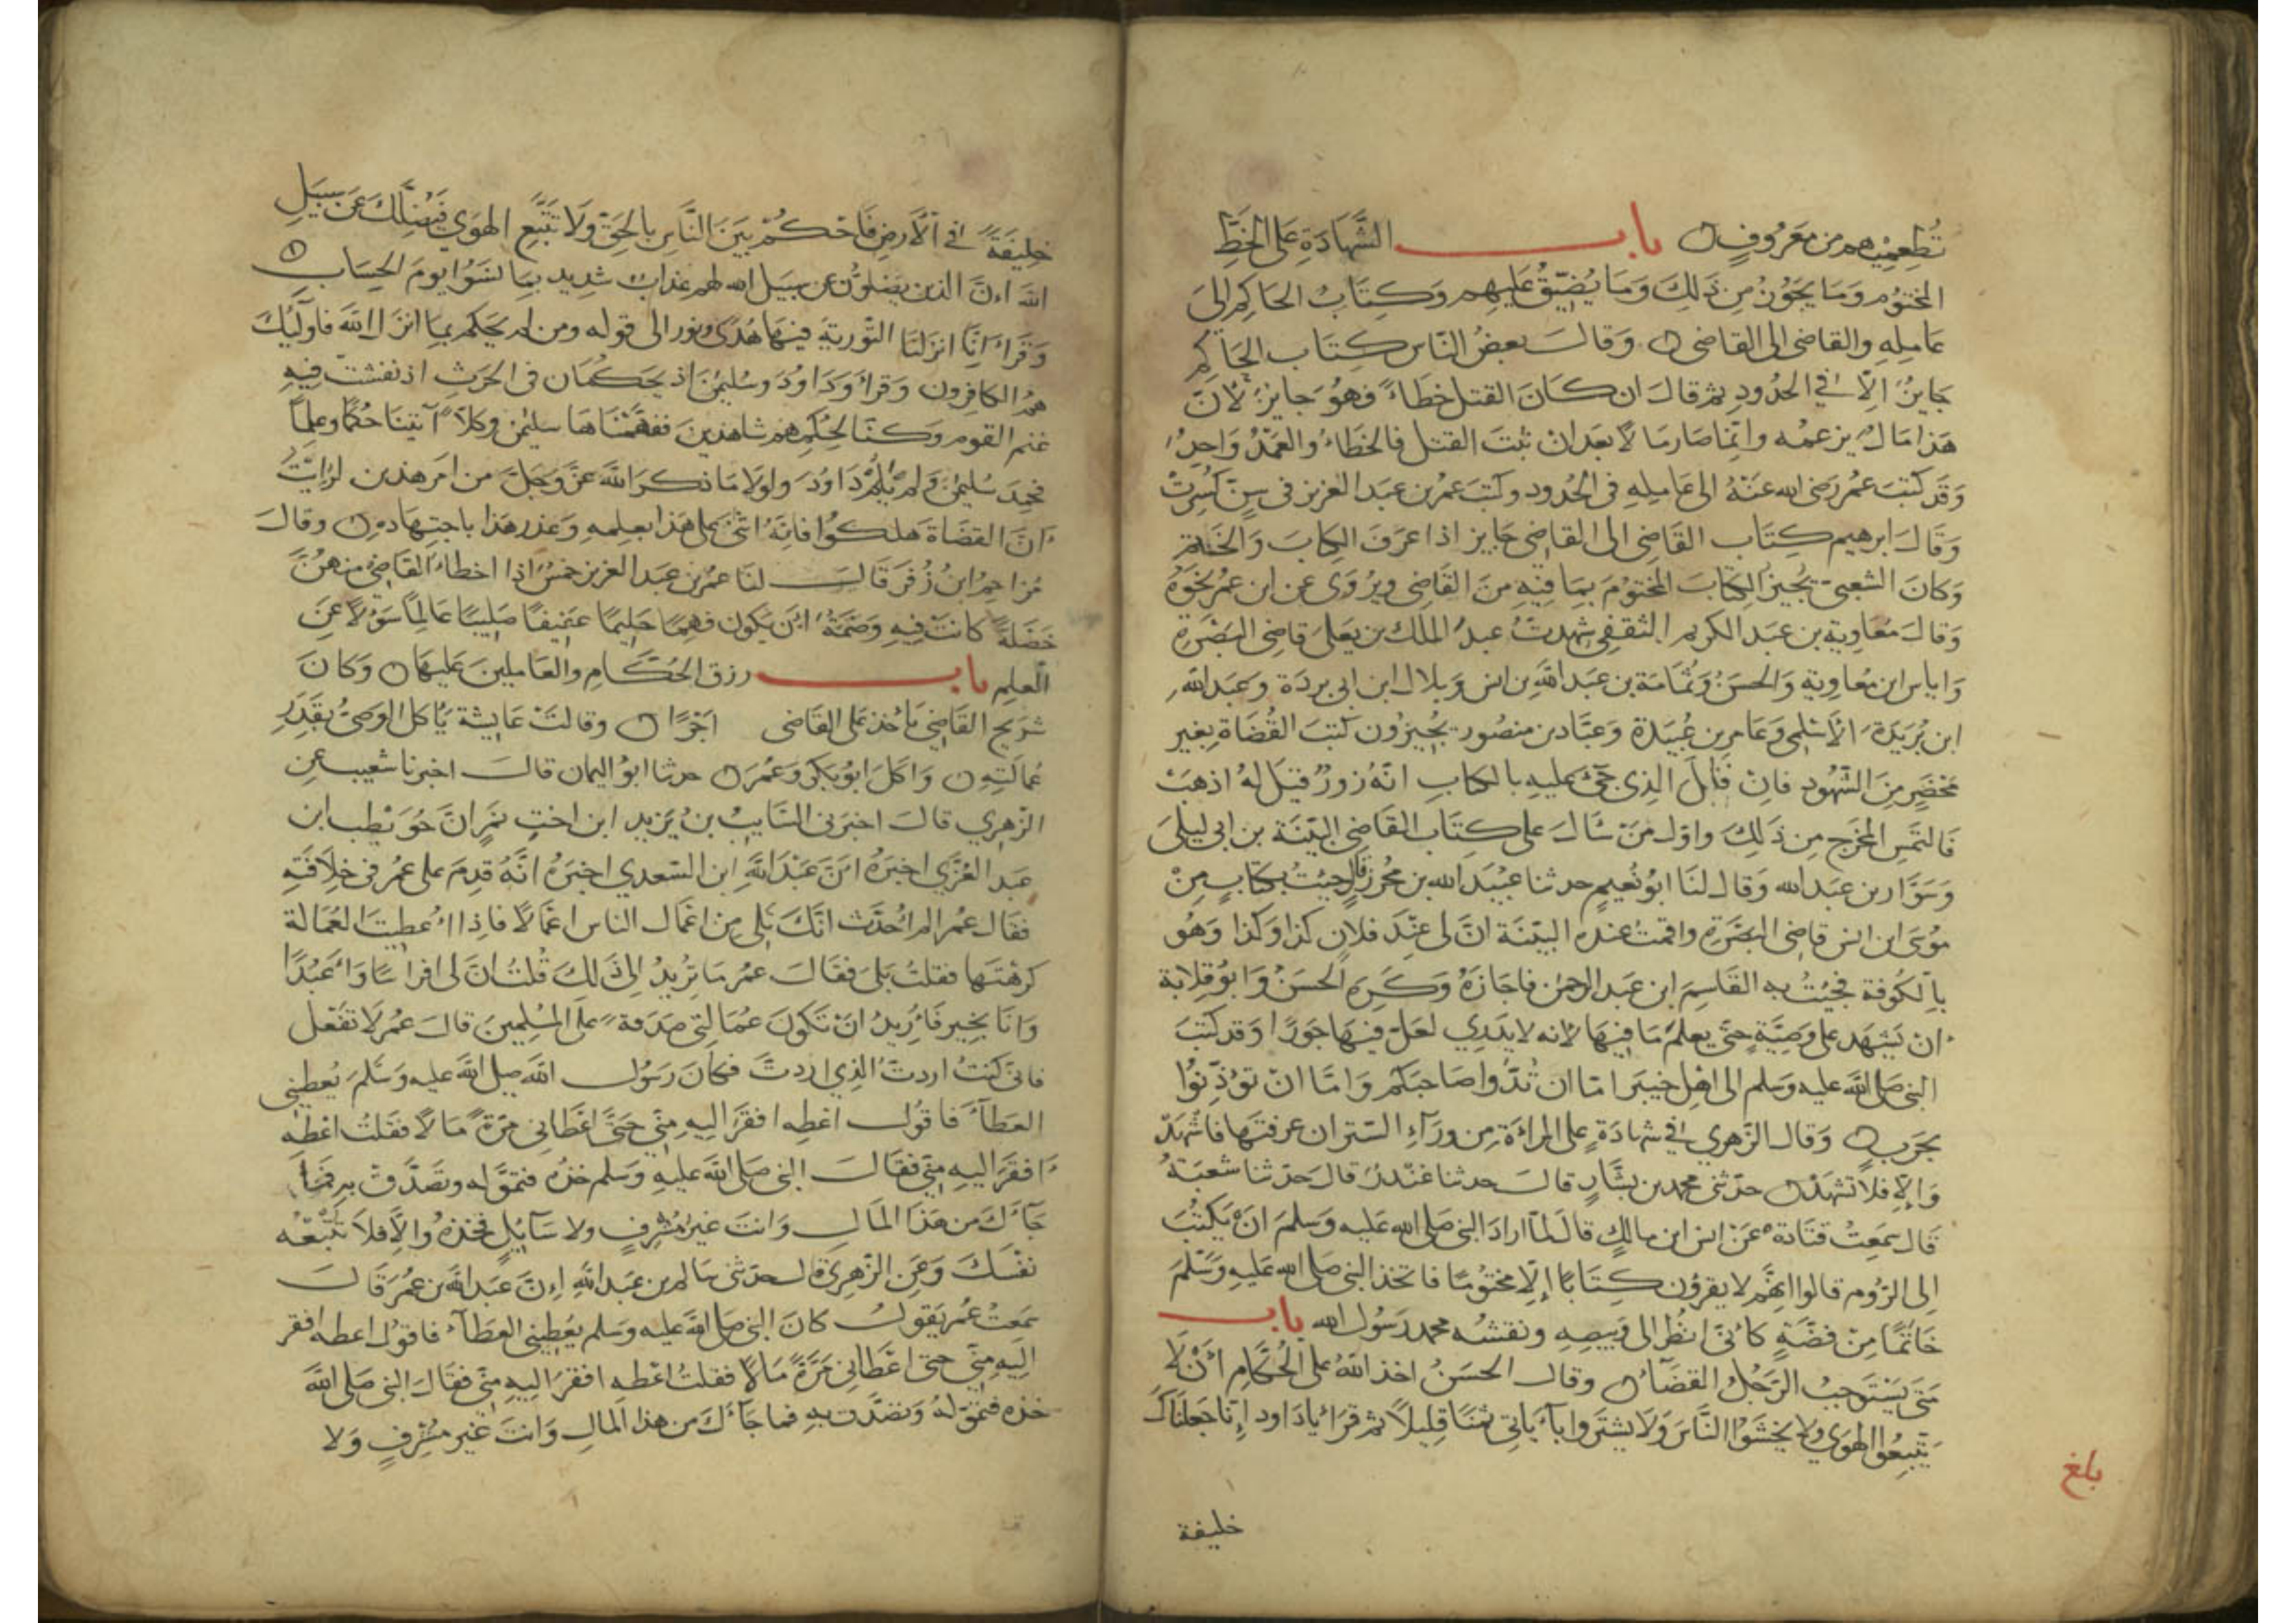 تُطعِمِيْهم من مَعْرُوفٍ ه باب الشَّهَادَةِ عَلَى الخَطِّ
المختوم وَمَا يَجُوْزُ مِن ذَلِكَ وَمَا يُضَيَّقُ عَلَيهِم وَكِتَابُ الحَاكِم اِلىَ
عَامِلِهِ والقاضى الى القاضى ه وَقَالَ بعضُ النّاس كِتَاب الحَاكِم
جَايزٌ اِلّا فِي الحدُودِ ثم قالَ ان كَانَ القتل خطَاءً فهوَ جَايزٌ لأَنَّ
هَذا مَالٌ بزعمْه وانّما صَارَ مَالاً بَعدَ انْ ثَبتَ القتل فالخطَاءُ والعَمْدُ وَاحِدٌ
وَقَد كتَبَ عمُر رَضى الله عَنْهُ الى عَامِلِهِ فى الحُدود وكتبَ عمُر بن عَبد العَزيز فى سِنّ كُسِرتْ
وَقَالَ ابرهيم كِتَاب القَاضِى الى القاضِى جَايز اذا عرَفَ الكِابَ وَالخَاتم
وَكانَ الشعبىّ يُجيزُ الكتَابَ المختوْمَ بمَا فِيْهِ مِنَ القَاضِى ويُرْوَى عن ابن عمُر نحَوَهُ
وَقَالَ مُعَاوِيَة بن عَبد الكريم الثقفى شهِدتُ عبدَ الملك بن يَعلَى قاضِى البَصْرَةِ
وَاياس ابن مُعاوِيَةِ وَالحسَنَ وَثمَامَة بن عَبد اللهِ بن انس وَبلال ابن ابى بردَة وَعَبد الله
ابن بُرَيَدَة الأسْلمِى وَعَامر بن عُبَيْدَة وَعبَّاد بن منصُور يُجيْزُون كتبَ القُضَاة بغَير
مَحْضَرٍ مِنَ الشّهُود فانْ قالَ الذِى جِئَ عليهِ بالكابِ انّهُ زورٌ قيلَ لهُ اذهَبْ
فَالتمَس المخرَج مِن ذَلِكَ واوّل مَنْ سَألَ على كِتَاب القَاضِى البيّنَة بن ابى ليلىَ
وَسَوَّار بن عبَد الله وَقَال لنَا ابوُ نُعَيم حدثنا عبُيدَ الله بن مُحرز قال جِئتُ بكتابٍ مِنْ
مُوسَى ابن انس قاضِى البَصْرَةِ واقمتُ عنده البيّنَة انَّ لى عِنْدَ فلان كذا وَكذا وَهُو
بالكُوفة فجئتُ به القَاسِمَ ابن عَبد الرحمن فاجَازَهُ وَكَرِهَ الحسَنُ وَابوُ قِلابة
ان يَشهَد على وَصِيَّةٍ حَتّى يعلمَ مَا فِيهَا لأنه لا يَدرِي لعَلّ فيهَا جَورًا وَقد كتَبَ
النبى صَلى الله عَليه وَسَلم الى اهْلِ خيبَر امّا ان تَدُوا صَاحبَكم وَامّا ان توُذِنُوا
بحَربٍ ه وَقال الزّهرِي فِي شهادَةٍ عَلى المراءَةِ مِن وَرَآءِ السّتر ان عرفتَهَا فاشْهَدْ
وَاِلّا فلا تشهَدْ ه حَدّثنى محمد بن بشَّارٍ قالَ حدثنا غنْدرٌ قالَ حَدّثنا شعبَةُ
قَال سَمِعتُ قتَادَة عَنْ انس ابن مالكٍ قالَ لَمّا ارادَ النبى صَلى الله عَليه وَسَلمَ انْ يَكتُبَ
اِلى الرُّوم قالوا اِنهَّم لا يقرؤن كِتَابًا اِلّا مختُومًا فاتخذ النبى صَلى الله عَليهِ وَسَلّمَ
خَاتمًا مِنْ فضَّةٍ كانّى انظُر الى وَبيصِهِ ونقشهُ محمد رَسُول الله باب
مَتَى يَسْتَوجبُ الرّجُلُ القضَآءَ ه وقال الحسَنُ اخذ اللهُ على الحُكّامِ أنْ لَا
يَتّبِعُوا الهوَى ولا يخشَوُا النَّاسَ وَلَا يشتَروا بآيَاتِى ثمنًا قليلاً ثم قرَأ يا دَاود اِنّا جَعلنَاكَ
بلغ
خليفة
خليفَةً فِي الأَرضِ فَاحْكُمْ بَيَنَ النَّاسِ بالحَقّ وَلَا تتَّبَّعِ الهوَى فَيُضِلَّكَ عَن سَبَيلِ
الله اِنَّ الذين يَضلوُّن عن سبيل الله لهم عذابٌ شدِيد بمَا نسَوُا يومَ الحِسَابِ ه
وَقَراءَ اِنَّا انزلنَا التّوريةَ فيْهَا هُدًى ونور الى قوله ومن لم يَحكم بمَا انزل الله فاولَئكَ
همُ الكافِرون وَقرأ وَدَاوُدَ وسُليمٰنَ اذ يَحَكمَان فى الحَرثِ اذ نفشتْ فيهِ
غنم القوم وَكنّا لحُكمِهم شاهِدْينَ ففهَّمْنَاهَا سليمٰن وكلاًّ آتينَا حُكمًا وعلمًا
فحَمِدَ سُليمٰنَ وَلم يَلُمْ دَاوُدَ ولولَا مَا ذكَر الله عَزَّ وَجَلَّ من امَر هذين لرُايْتُ
انَّ القضَاةَ هَلكوُا فانّهُ اثنىٰ عَلى هذا بعِلمِهِ وَعذر هذا باجتِهَادهِ ه وقالَ
مُزاحِمُ ابنُ زُفَر قَالَ لنَا عمُر بن عبَد العَزيز خَمْسٌ اذا اخطاءَ القَاضِىُ منهنَّ
خَصْلَةً كانَتْ فيهِ وَصْمَةٌ ان يَكون فهِمًا حَلِيمًا عَفيفًا صَليبًا عَالِمًا سَؤلاً عَنِ
العِلمِ باب رزق الحُكّامِ والعَاملينَ عَليهَا ه وَكانَ
شرَيح القَاضِى يَأخذ على القَاضِى اَجْرًا ه وقالتْ عَايشة يَأكل الوَصىُّ بقَدَرِ
عُمالَتِهِ ه وَاكلَ ابُو بَكرٍ وَعُمَر ه حدثنا ابوُ اليمان قالَ اخبرنا شعَيب عَنِ
الزّهري قالَ اخبَرَنى السَّايبُ بن يَزيد ابن اختِ نَمرٍ انَّ حُوَيْطب ابن
عَبد العُزَّي اخبَرَهُ انَّ عَبْدَ اللهِ ابن السّعدي اخبَرَهُ انّهُ قدِمَ على عمُر فى خِلَافَتِهِ
فقال عمُر الم اُحَدَّث انّكَ تَلِى مِن اعمَال الناس اعمَالاً فاذا اُعطِيتَ العُمَالة
كرِهْتَها فقلتُ بَلىَ فقَالَ عمُر مَا تريْدُ اِلى ذَلكَ قُلتُ انَّ لى افراسًا وَاعْبُدًا
وَانَا بخَيرٍ فَأُرِيدُ انْ تَكونَ عُمَالتِى صَدَقةً علَى المُسْلمِينَ قالَ عمُر لَا تفْعَل
فانّى كنتُ اردتُ الّذِي اردتَ فكانَ رَسُول الله صَلى الله عَليه وَسَلّمَ يُعطِينِى
العَطآءَ فاقُول اعْطِه افقرَ اليهِ مِنّى حَتّى اعْطَانِى مَرّةً مَالاً فقلتُ اعْطهِ
افقَرَ اليهِ مِنّى فقَالَ النبى صَلى الله عَليهِ وَسَلم خذهُ فتمَوَّله وتصَدَّقْ بهِ فمَا
جَآءَكَ مِن هَذا المَالِ وَانتَ غيرُ مُشْرِفٍ ولا سَآيلٍ فخذهُ واِلّا فلَا تتْبَعْهُ
نفْسَكَ وَعَنِ الزهِريِّ قال حدّثنى سَالم بن عَبد اللهِ اِنَّ عَبد اللهَ بن عمُرَ قَالَ
سَمعتُ عمُر يَقولُ كَانَ النبى صَلى الله عليه وسلم يعُطِينى العَطآءَ فاقوُل اعطه افقر
اليَهِ مِنّى حتى اعْطانِى مَرّةً مَالاً فقلتُ اعْطهِ افقرَ اليهِ مِنّى فقَالَ النبى صَلى الله
خذه فتمَوّلهُ وَتصَدّق بهِ فما جَآءَكَ مِن هذا المَالِ وَانتَ غير مُشْرِفٍ وَلا